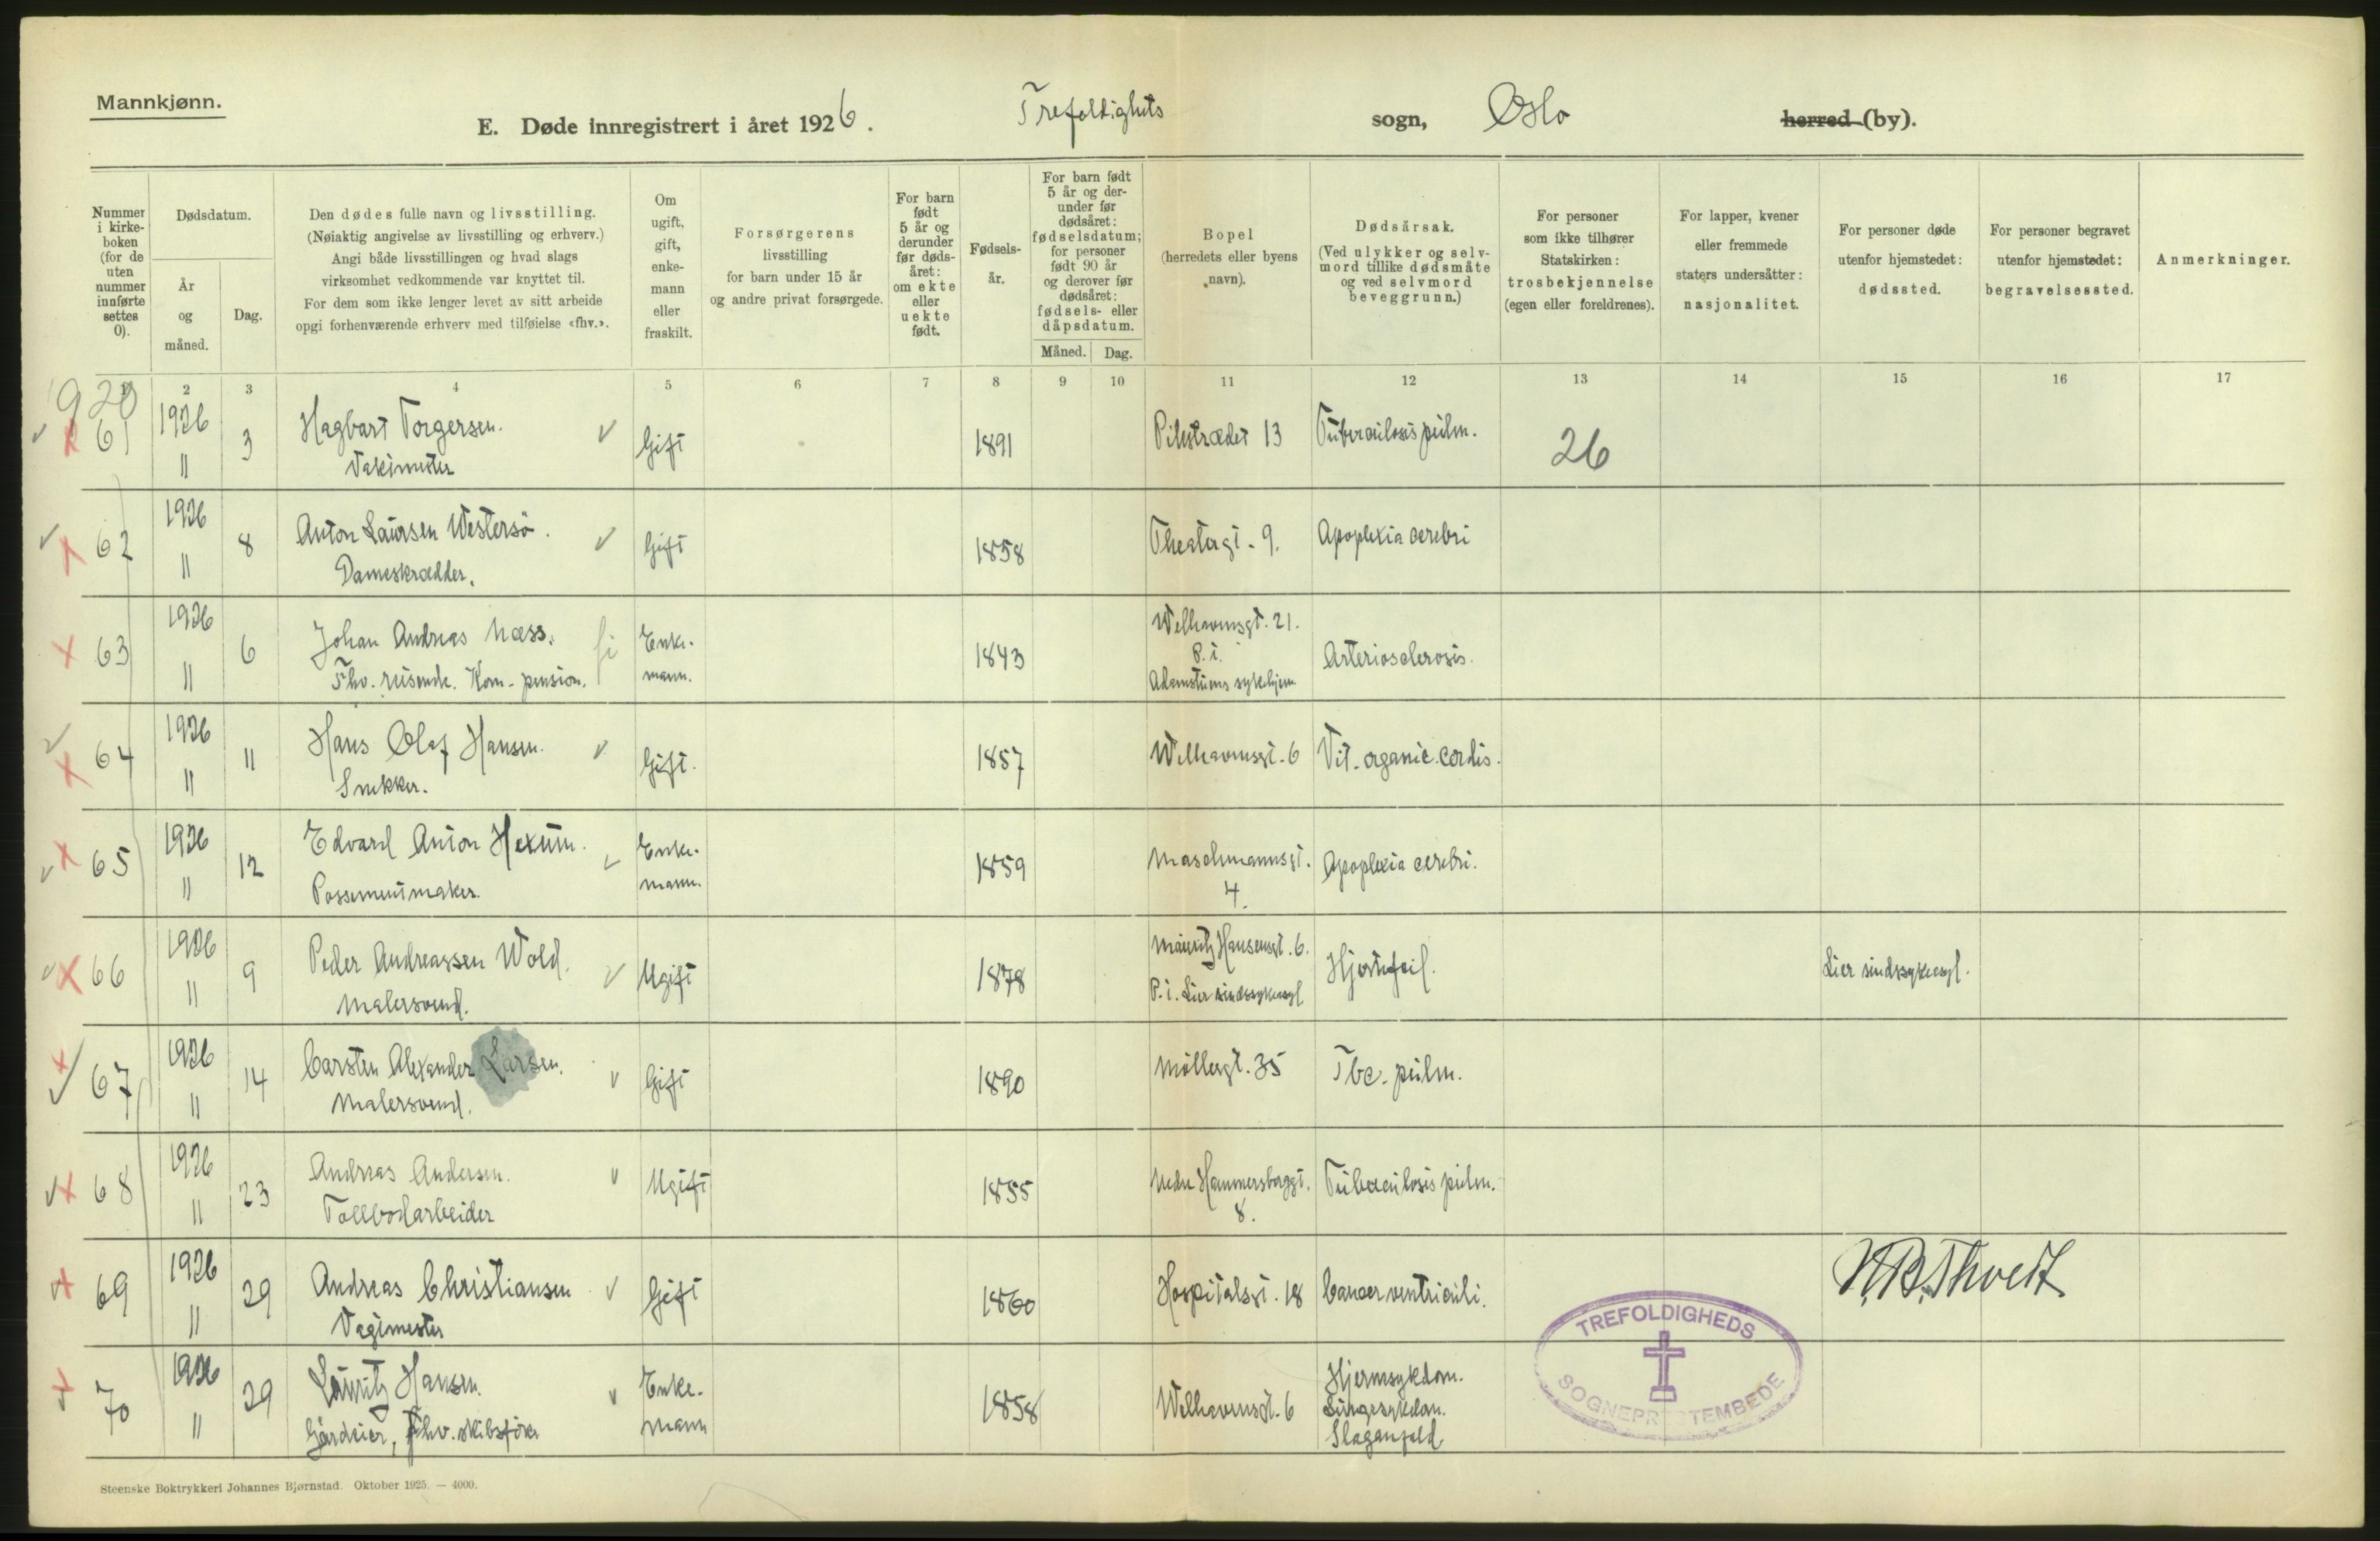 Mannkjønn.
E. Døde innregistrert i året 1926. Trefoldighets sogn, Oslo herred (by).
Nummer i kirke-boken (for de uten nummer innførte settes 0).
Dødsdatum.
År og måned.
Dag.
Den dødes fulle navn og livsstilling.
(Nøiaktig angivelse av livsstilling og erhverv.)
Angi både livsstillingen og hvad slags
virksomhet vedkommende var knyttet til.
For dem som ikke lenger levet av sitt arbeide
opgi forhenværende erhverv med tilføielse «fhv.».
Om ugift, gift, enke-mann eller fraskilt.
Forsørgerens
livsstilling
for barn under 15 år
og andre privat forsørgede.
For barn født 5 år og derunder før døds-året: om ekte eller uekte født.
Fødsels-år.
For barn født 5 år og der-under før dødsåret: fødselsdatum; for personer født 90 år og derover før dødsåret: fødsels- eller dåpsdatum.
Måned. Dag.
Bopel
(herredets eller byens
navn).
Dødsårsak.
(Ved ulykker og selv-
mord tillike dødsmåte
og ved selvmord
beveggrunn.)
For personer
som ikke tilhører
Statskirken:
trosbekjennelse
(egen eller foreldrenes).
For lapper, kvener
eller fremmede
staters undersåtter:
nasjonalitet.
For personer døde
utenfor hjemstedet:
dødssted.
For personer begravet
utenfor hjemstedet:
begravelsessted.
Anmerkninger.
1 2 3 4 5 6 7 8 9 10 11 12 13 14 15 16 17
1920
61 1926 11 3 Hagbart Torgersen. Gift 1891 Pilestrædet 13 Tuberculosis pulm. 26
Vaktmester
62 1926 11 8 Anton Laursen Westersö. Gift 1858 Theatergt. 9. Apoplexia cerebri
Dameskrædder.
63 1926 11 6 Johan Andreas Næss. Enke-mann. 1843 Welhavensgt. 21. P.t. Adamstuens sykehjem Arteriosclerosis.
Fhv. reisende. Kom. pension.
64 1926 11 11 Hans Olaf Hansen. Gift. 1857 Welhavensgt. 6 Vit. organic. cordis.
Snekker.
65 1926 11 12 Edvard Anton Hexum. Enke-mann. 1859 Maschmannsgt. 4. Apoplexia cerebri.
Possementmaker.
66 1926 11 9 Peder Andreassen Wold. Ugift 1878 Mauritz Hansensgt. 6. P.t. Lier sindssykeasyl Hjertefeil. Lier sindssykeasyl.
Malersvend.
67 1926 11 14 Carsten Alexander Larsen. Gift 1890 Møllergt. 35 Tbc. pulm.
Malersvend.
68 1926 11 23 Andreas Andersen. Ugift 1855 Nedre Hammersborggt. 8. Tuberculosis pulm.
Tollbodarbeider
69 1926 11 29 Andreas Christiansen Gift 1860 Hospitalsgt. 18 Cancer ventriculi.
Vagtmester
70 1926 11 29 Lauritz Hansen. Enke-mann 1858 Welhavensgt. 6 Hjernesykdom. Lungesykdom. Slaganfald
Gårdeier, fhv. skibsfører
TREFOLDIGHEDS
SOGNEPRESTEMBEDE
Steenske Boktrykkeri Johannes Bjørnstad. Oktober 1925. — 4000.